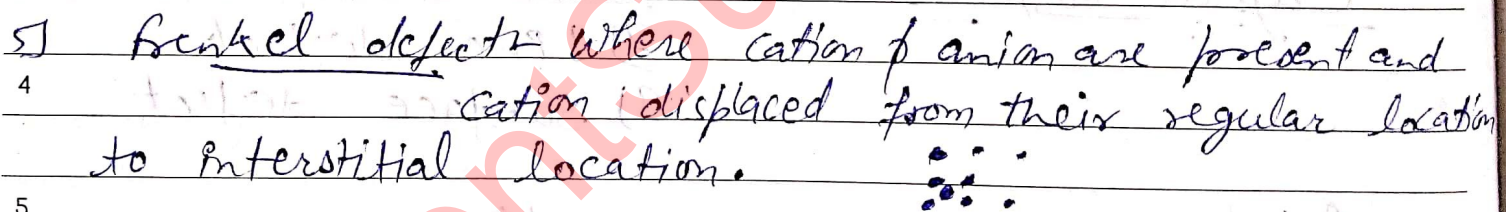 5] frenkel defect where cation & anion are present and
4
cation displaced from their regular location
to interstitial location.
5